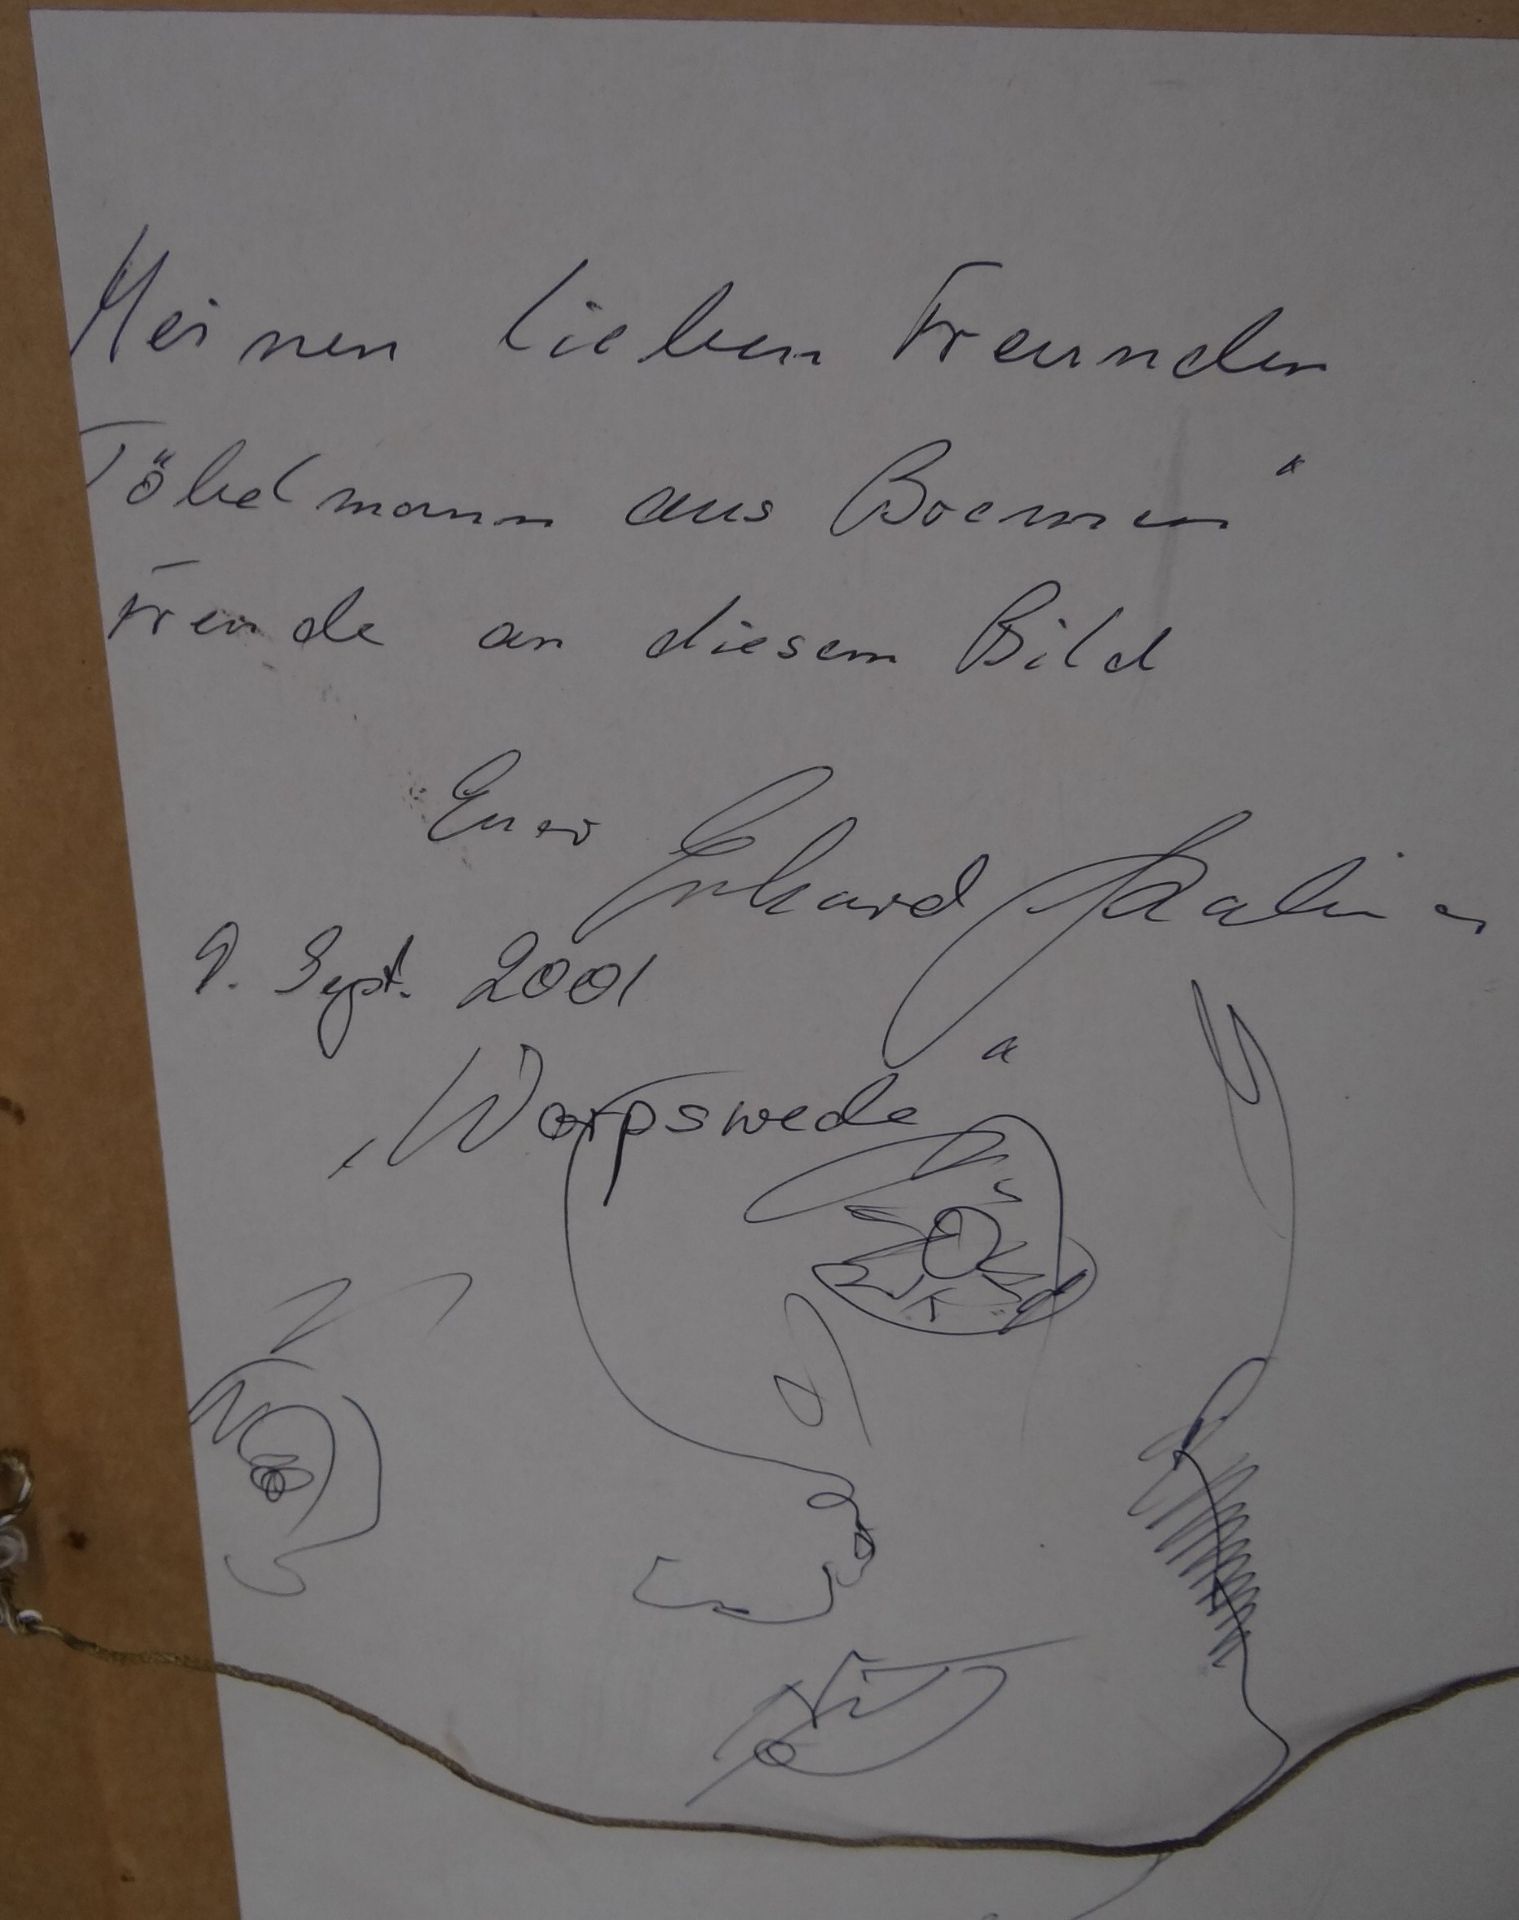 Meinen lieben Freunden
Töbelmann aus Bremen"
Freude an diesem Bild
Euer Erhard Kalina
9. Sept. 2001
"Worpswede"